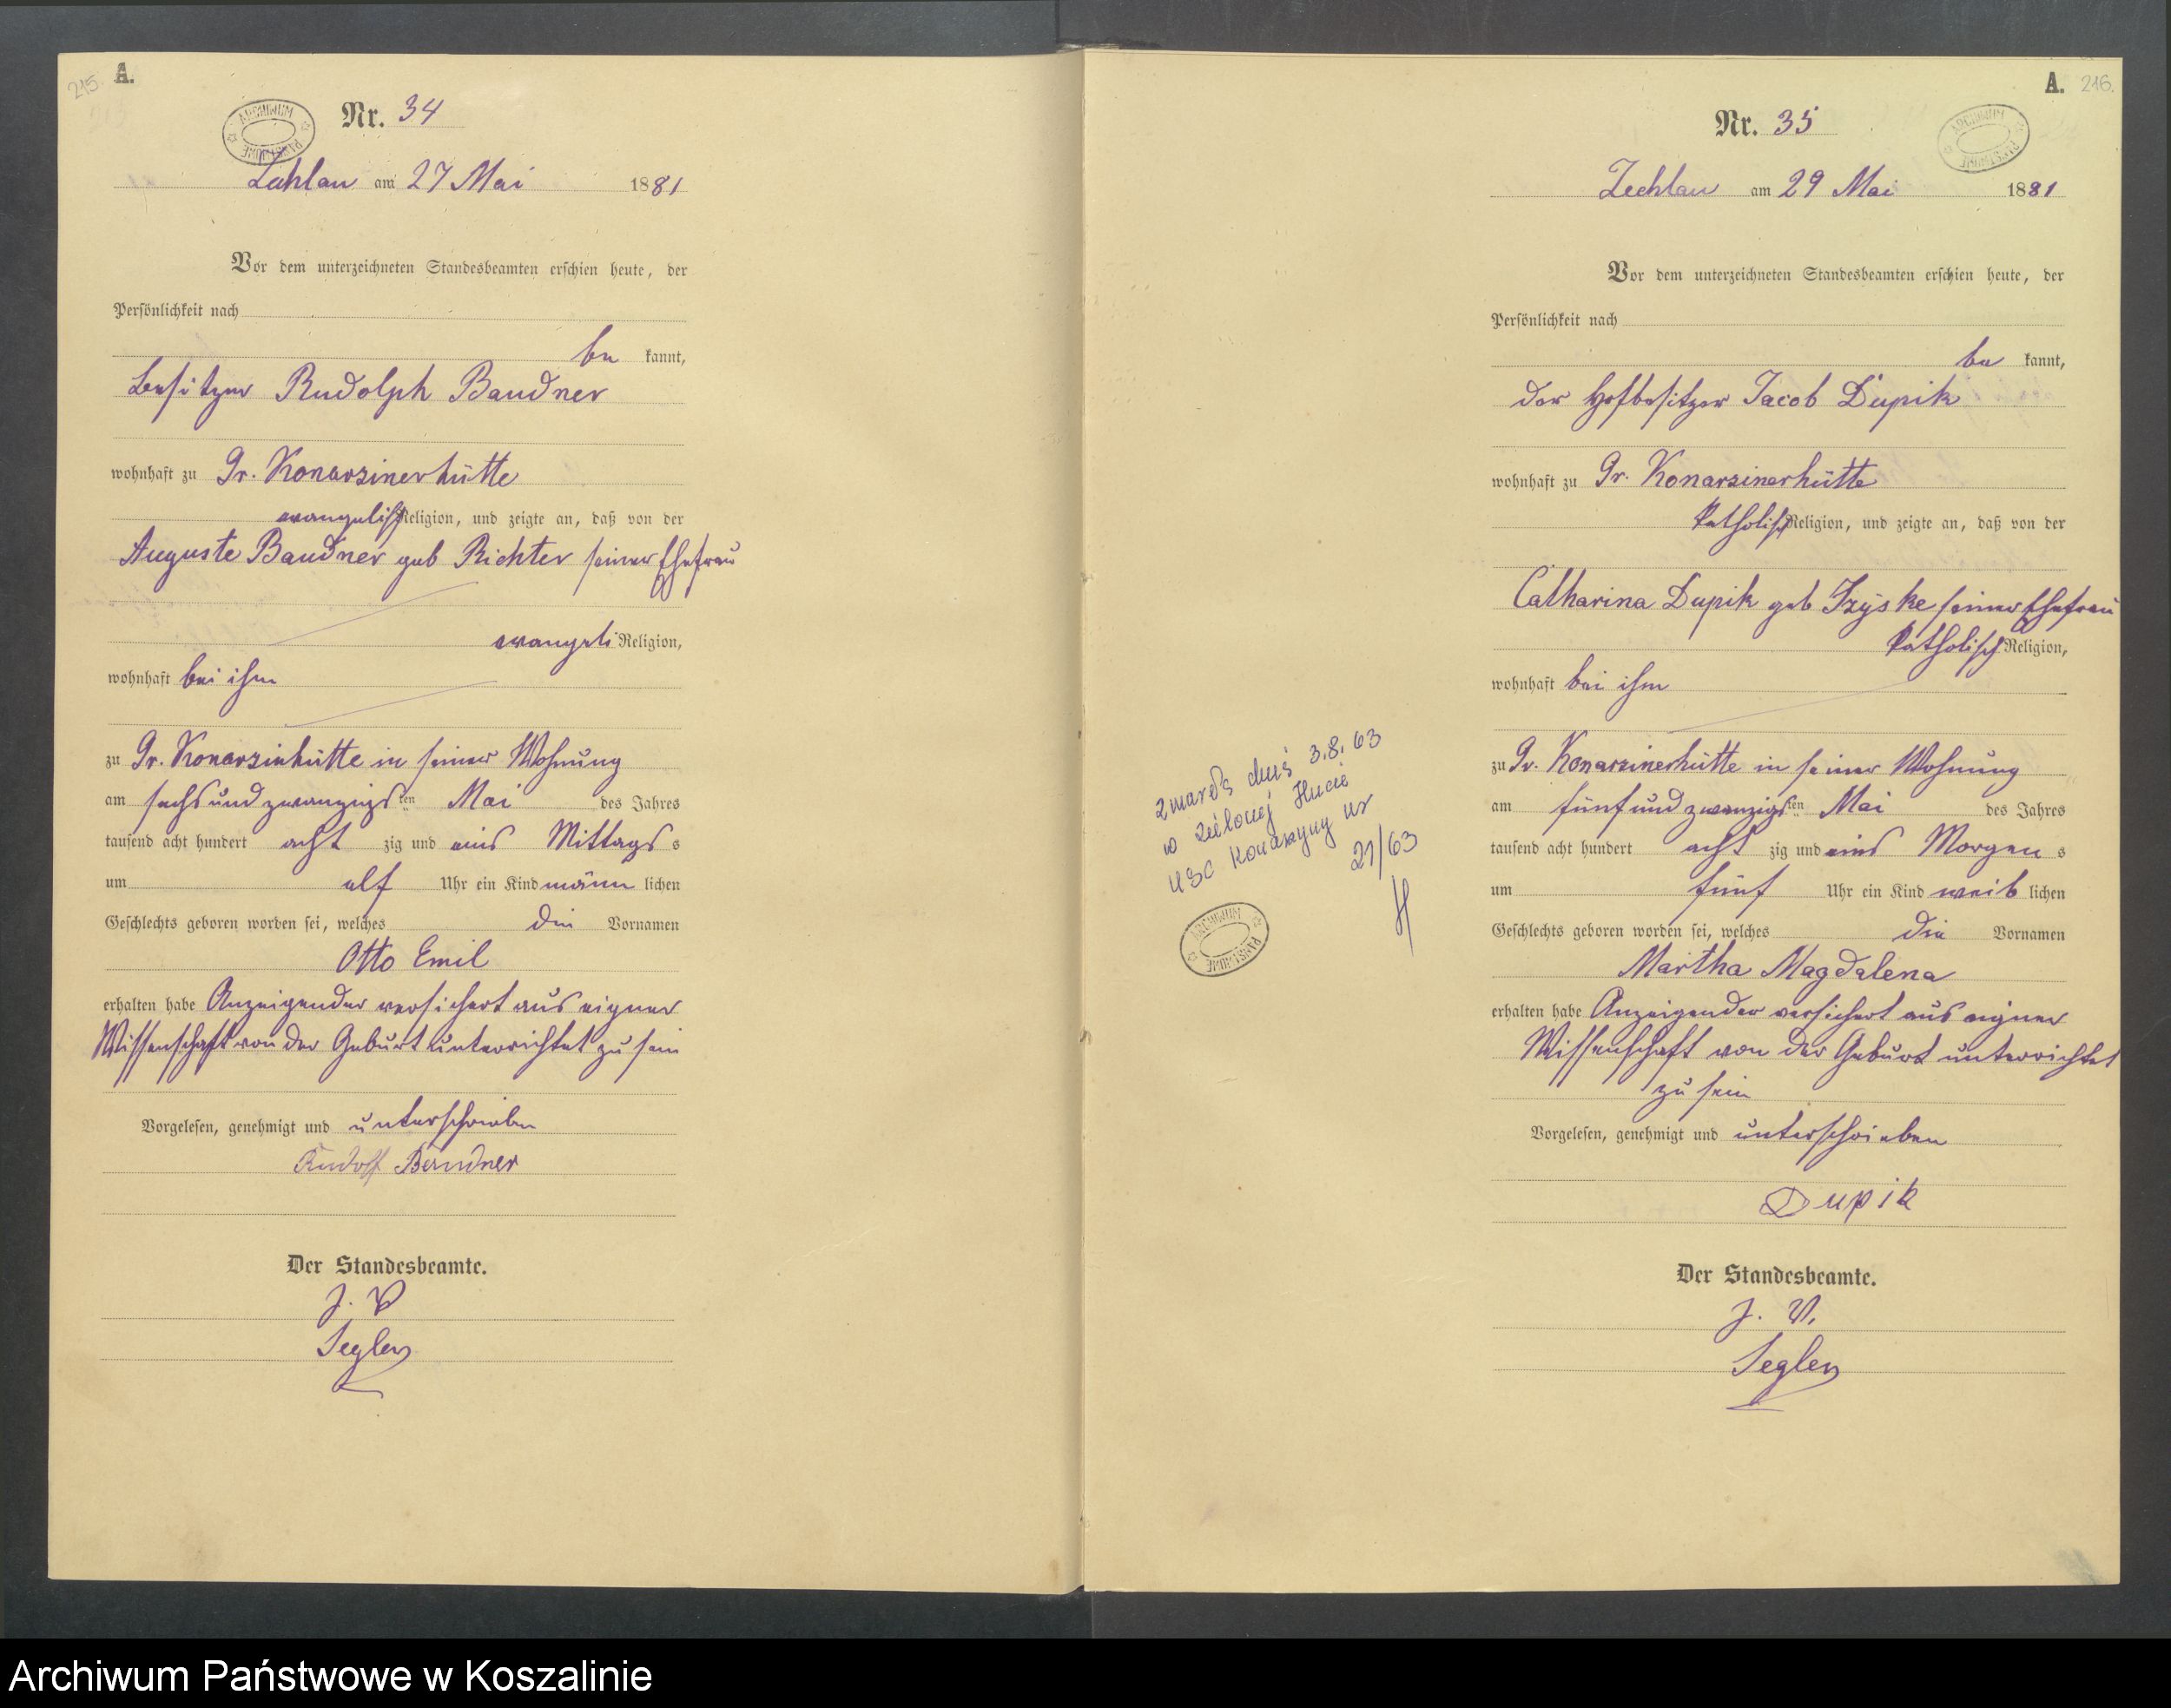 215.
A.
Nr. 34
ARCHIWUM PAŃSTWOWE
Zechlau am 27 Mai 1881
Vor dem unterzeichneten Standesbeamten erschien heute, der
Persönlichkeit nach
be kannt,
Besitzer Rudolph Baudner
wohnhaft zu Gr. Konarzinerhütte
evangelisch Religion, und zeigte an, daß von der
Auguste Baudner geb Richter seiner Ehefrau
evangeli Religion,
wohnhaft bei ihm
zu Gr. Konarzinhütte in seiner Wohnung
am sechsundzwanzigsten Mai des Jahres
tausend acht hundert acht zig und eins Mittags s
um elf Uhr ein Kind männ lichen
Geschlechts geboren worden sei, welches die Vornamen
Otto Emil
erhalten habe Anzeigender versichert aus eigner
Wissenschaft von der Geburt unterrichtet zu sein
Vorgelesen, genehmigt und unterschrieben
Rudolf Baudner
Der Standesbeamte.
J. V
Segler
A. 216.
Nr. 35
ARCHIWUM PAŃSTWOWE
Zechlau am 29 Mai 1881
Vor dem unterzeichneten Standesbeamten erschien heute, der
Persönlichkeit nach
be kannt,
der Hofbesitzer Jacob Dupik
wohnhaft zu Gr. Konarzinerhütte
katholisch Religion, und zeigte an, daß von der
Catharina Dupik geb seiner Ehefrau
katholisch Religion,
wohnhaft bei ihm
zu Gr. Konarzinerhütte in seiner Wohnung
am fünfundzwanzigsten Mai des Jahres
tausend acht hundert acht zig und eins Morgen s
um fünf Uhr ein Kind weib lichen
Geschlechts geboren worden sei, welches die Vornamen
Martha Magdalena
erhalten habe Anzeigender versichert aus eigner
Wissenschaft von der Geburt unterrichtet
zu sein
Vorgelesen, genehmigt und unterschrieben
Dupik
Der Standesbeamte.
J. V.
Segler
zmarła dnia 3.8.63
w Zielonej Hucie
USC Konarzyny nr
21/63
ARCHIWUM PAŃSTWOWE
Archiwum Państwowe w Koszalinie